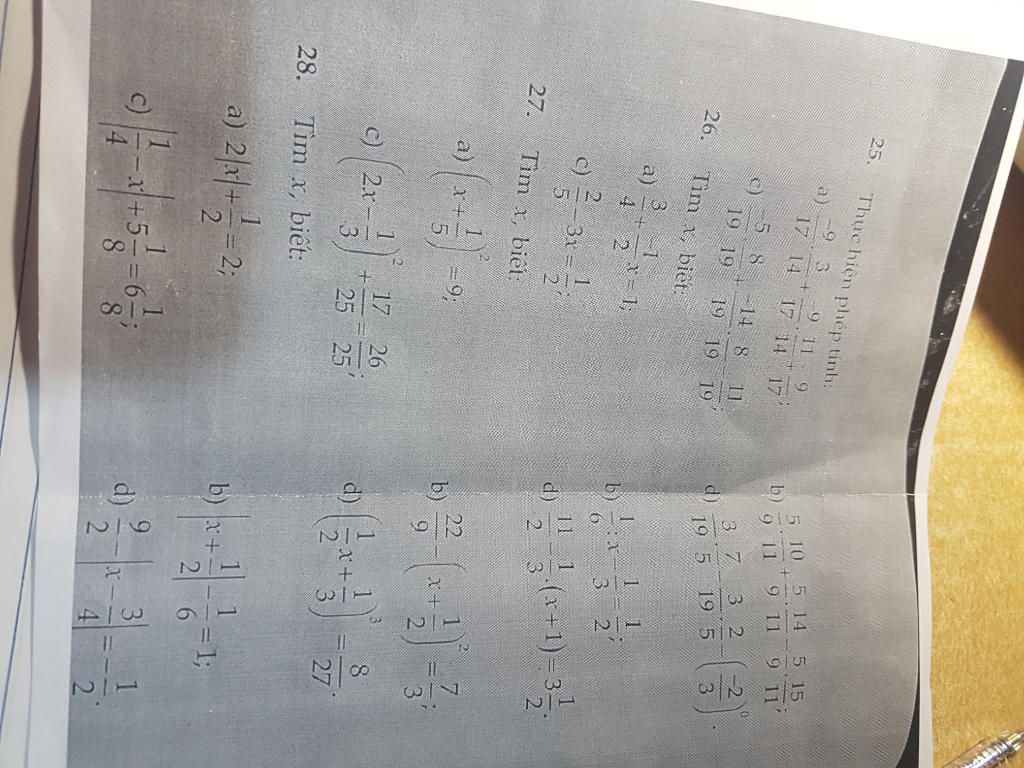 25. Thực hiện phép tính:
a) -9/17 . 3/14 + -9/17 . 11/14 + 9/17;
b) 5/9 . 10/11 + 5/9 . 14/11 - 5/9 . 15/11;
c) -5/19 . 8/19 + -14/19 . 8/19 - 11/19;
d) 3/19 . 7/5 - 3/19 . 2/5 - (-2/3)^0.
26. Tìm x, biết:
a) 3/4 + -1/2 x = 1;
b) 1/6 : x - 1/3 = 1/2;
c) 2/5 - 3x = 1/2;
d) 11/2 - 1/3 . (x+1) = 3 1/2.
27. Tìm x, biết:
a) (x + 1/5)^2 = 9;
b) 22/9 - (x + 1/2)^2 = 7/3;
c) (2x - 1/3)^2 + 17/25 = 26/25;
d) (1/2 x + 1/3)^3 = 8/27.
28. Tìm x, biết:
a) 2|x| + 1/2 = 2;
b) |x + 1/2| - 1/6 = 1;
c) |1/4 - x| + 5 1/8 = 6 1/8;
d) 9/2 - |x - 3/4| = -1/2.